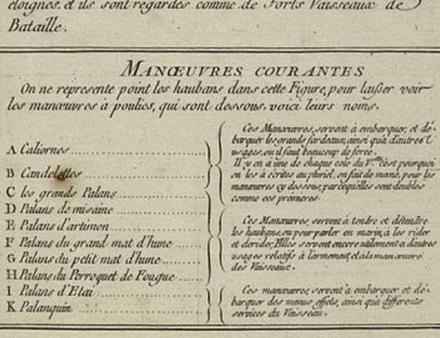 éloignes. et ils sont regardés comme de Forts Vaisseaux de
Bataille.
MANŒUVRES COURANTES
On ne represente point les haubans dans cette Figure, pour laisser voir
les manœuvres à poulies, qui sont dessous. voici leurs noms.
A Caliornes
B Candelettes
C les grands Palans
D Palans de misaine
E Palans d'artimon
F Palans du grand mat d'hune
G Palans du petit mat d'hune
H Palans du Perroquet de Fougue
I Palans d'Etai
K Palanquin
Ces Manœuvres, servent à embarquer, et dé-
barquer les grands fardeaux, ainsi qu'à d'autres
usages, ou il faut beaucoup de force.
Il y en a une de chaque coté du V.au c'est pourquoi
on les a écrites au pluriel. on fait de meme, pour les
manœuvres cy dessous, parcequ'elles sont doubles
comme ces premieres.
Ces Manœuvres, servent à tendre et détendre
les haubans, ou pour parler en marin, à les rider
et derider, Elles servent encore utilement a d'autres
usages relatifs à l'armement, et a la manœuvre
des Vaisseaux.
Ces manœuvres, servent à embarquer et dé-
barquer des menus effets, ainsi qu'à differents
services du Vaisseau.